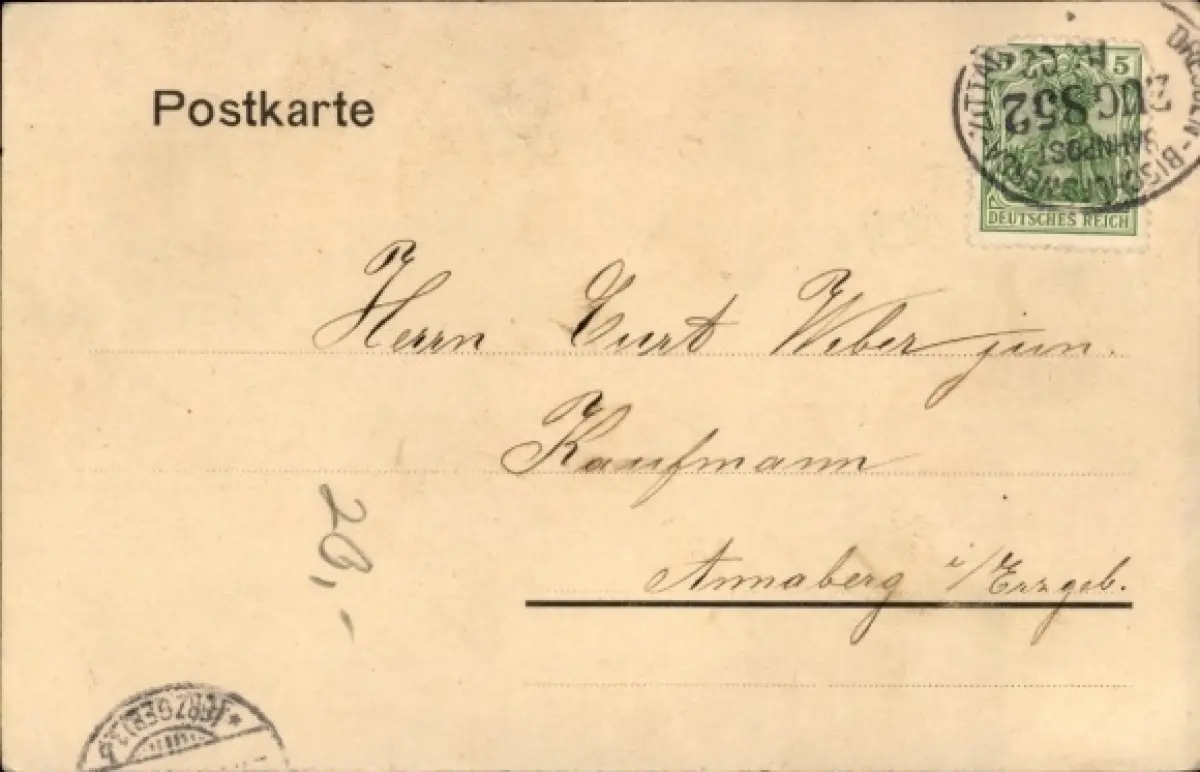 Postkarte
5
DEUTSCHES REICH
DRESDEN-BISCHOFSWERDA-ZITTAU
BAHNPOST
ZUG 852
Herrn Curt Weber jun.
Kaufmann
Annaberg i/Erzgeb.
20,-
(ERZGEB)